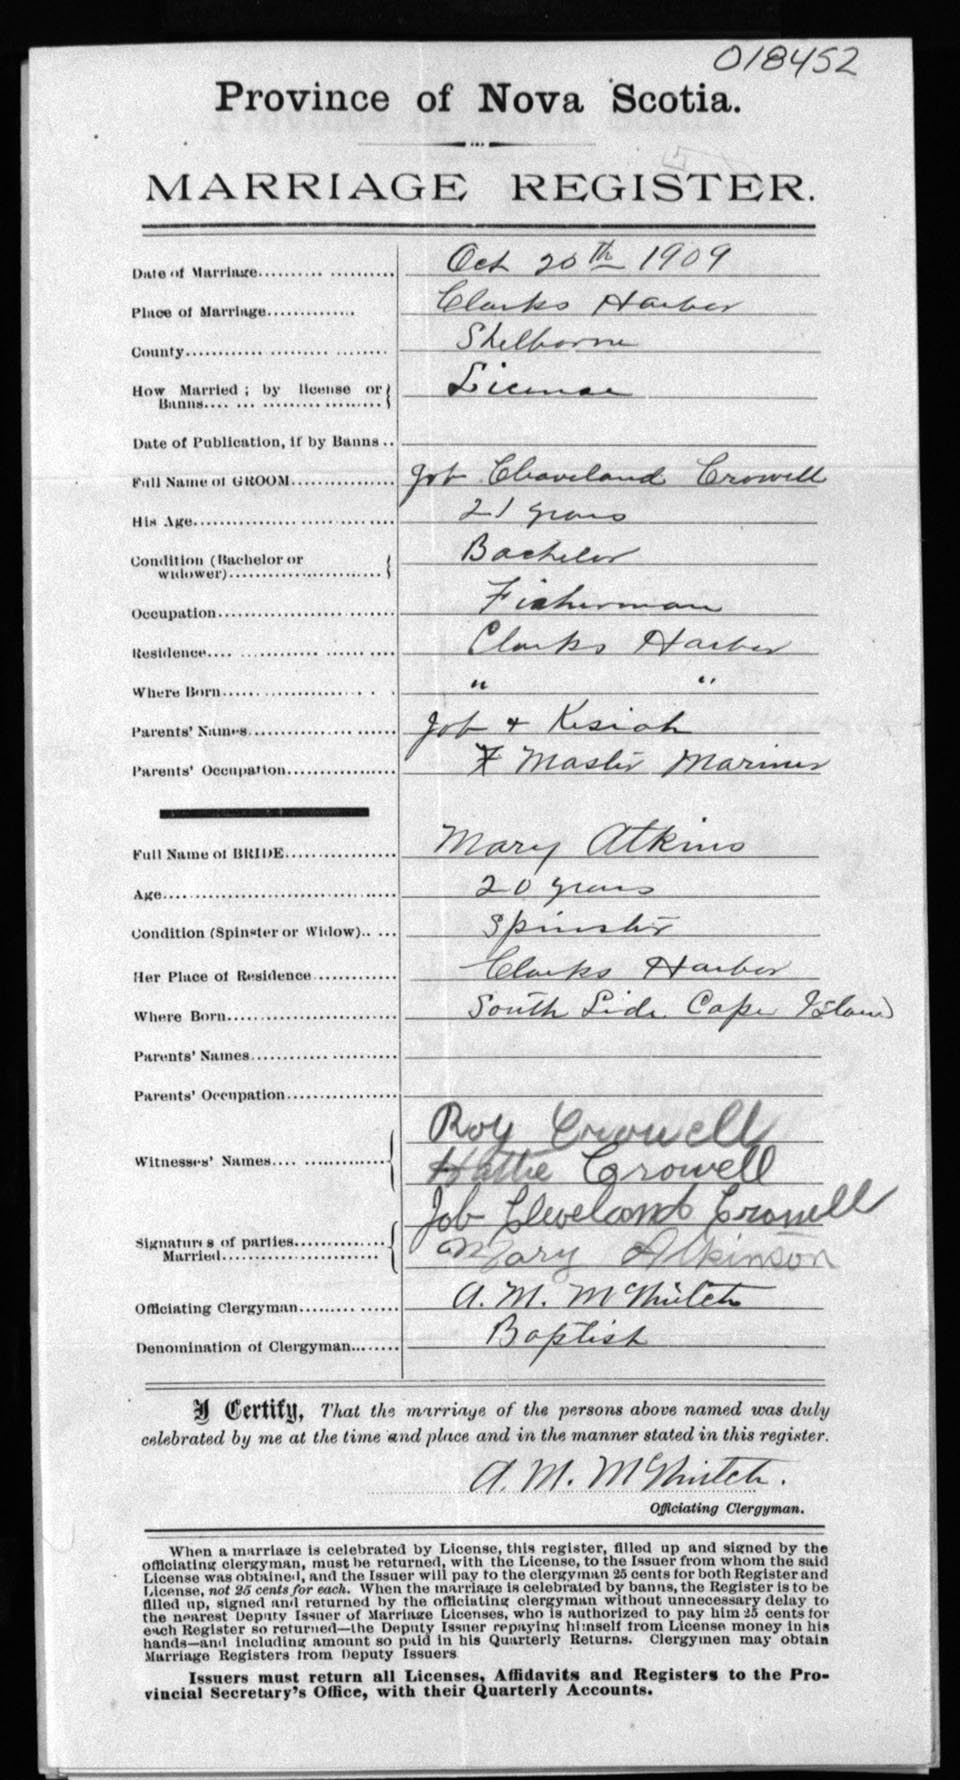 018452
Province of Nova Scotia.
MARRIAGE REGISTER.
Date of Marriage.......... .......... Oct 20th 1909
Place of Marriage.............. Clarks Harbor
County............ ........ ........ Shelborne
How Married ; by license or } License
Banns.... ... ..................
Date of Publication, if by Banns ..
Full Name of GROOM................ Job Cleaveland Crowell
His Age.................... ........ 21 years
Condition (Bachelor or { Bachelor
widower)........................
Occupation........................... Fisherman
Residence.... ............. ...... .... Clarks Harbor
Where Born...... ................ . . " "
Parents' Names.............. ....... Job & Kesiah
Parents' Occupation................ F Master Mariner
Full Name of BRIDE................. Mary Atkins
Age.................................... 20 years
Condition (Spinster or Widow).. ... Spinster
Her Place of Residence............. Clarks Harbor
Where Born.......................... South Side Cape Island
Parents' Names.......................
Parents' Occupation................
Roy Crowell
Witnesses' Names.... ............. { Hattie Crowell
Job Cleveland Crowell
Signatures of parties.............. { Mary Atkinson
Married........................
Officiating Clergyman............... A. M. McNintch
Denomination of Clergyman........ Baptist
I Certify, That the marriage of the persons above named was duly
celebrated by me at the time and place and in the manner stated in this register.
A. M. McNintch.
Officiating Clergyman.
When a marriage is celebrated by License, this register, filled up and signed by the
officiating clergyman, must be returned, with the License, to the Issuer from whom the said
License was obtained, and the Issuer will pay to the clergyman 25 cents for both Register and
License, not 25 cents for each. When the marriage is celebrated by banns, the Register is to be
filled up, signed and returned by the officiating clergyman without unnecessary delay to
the nearest Deputy Issuer of Marriage Licenses, who is authorized to pay him 25 cents for
each Register so returned—the Deputy Issuer repaying himself from License money in his
hands—and including amount so paid in his Quarterly Returns. Clergymen may obtain
Marriage Registers from Deputy Issuers
Issuers must return all Licenses, Affidavits and Registers to the Pro-
vincial Secretary's Office, with their Quarterly Accounts.